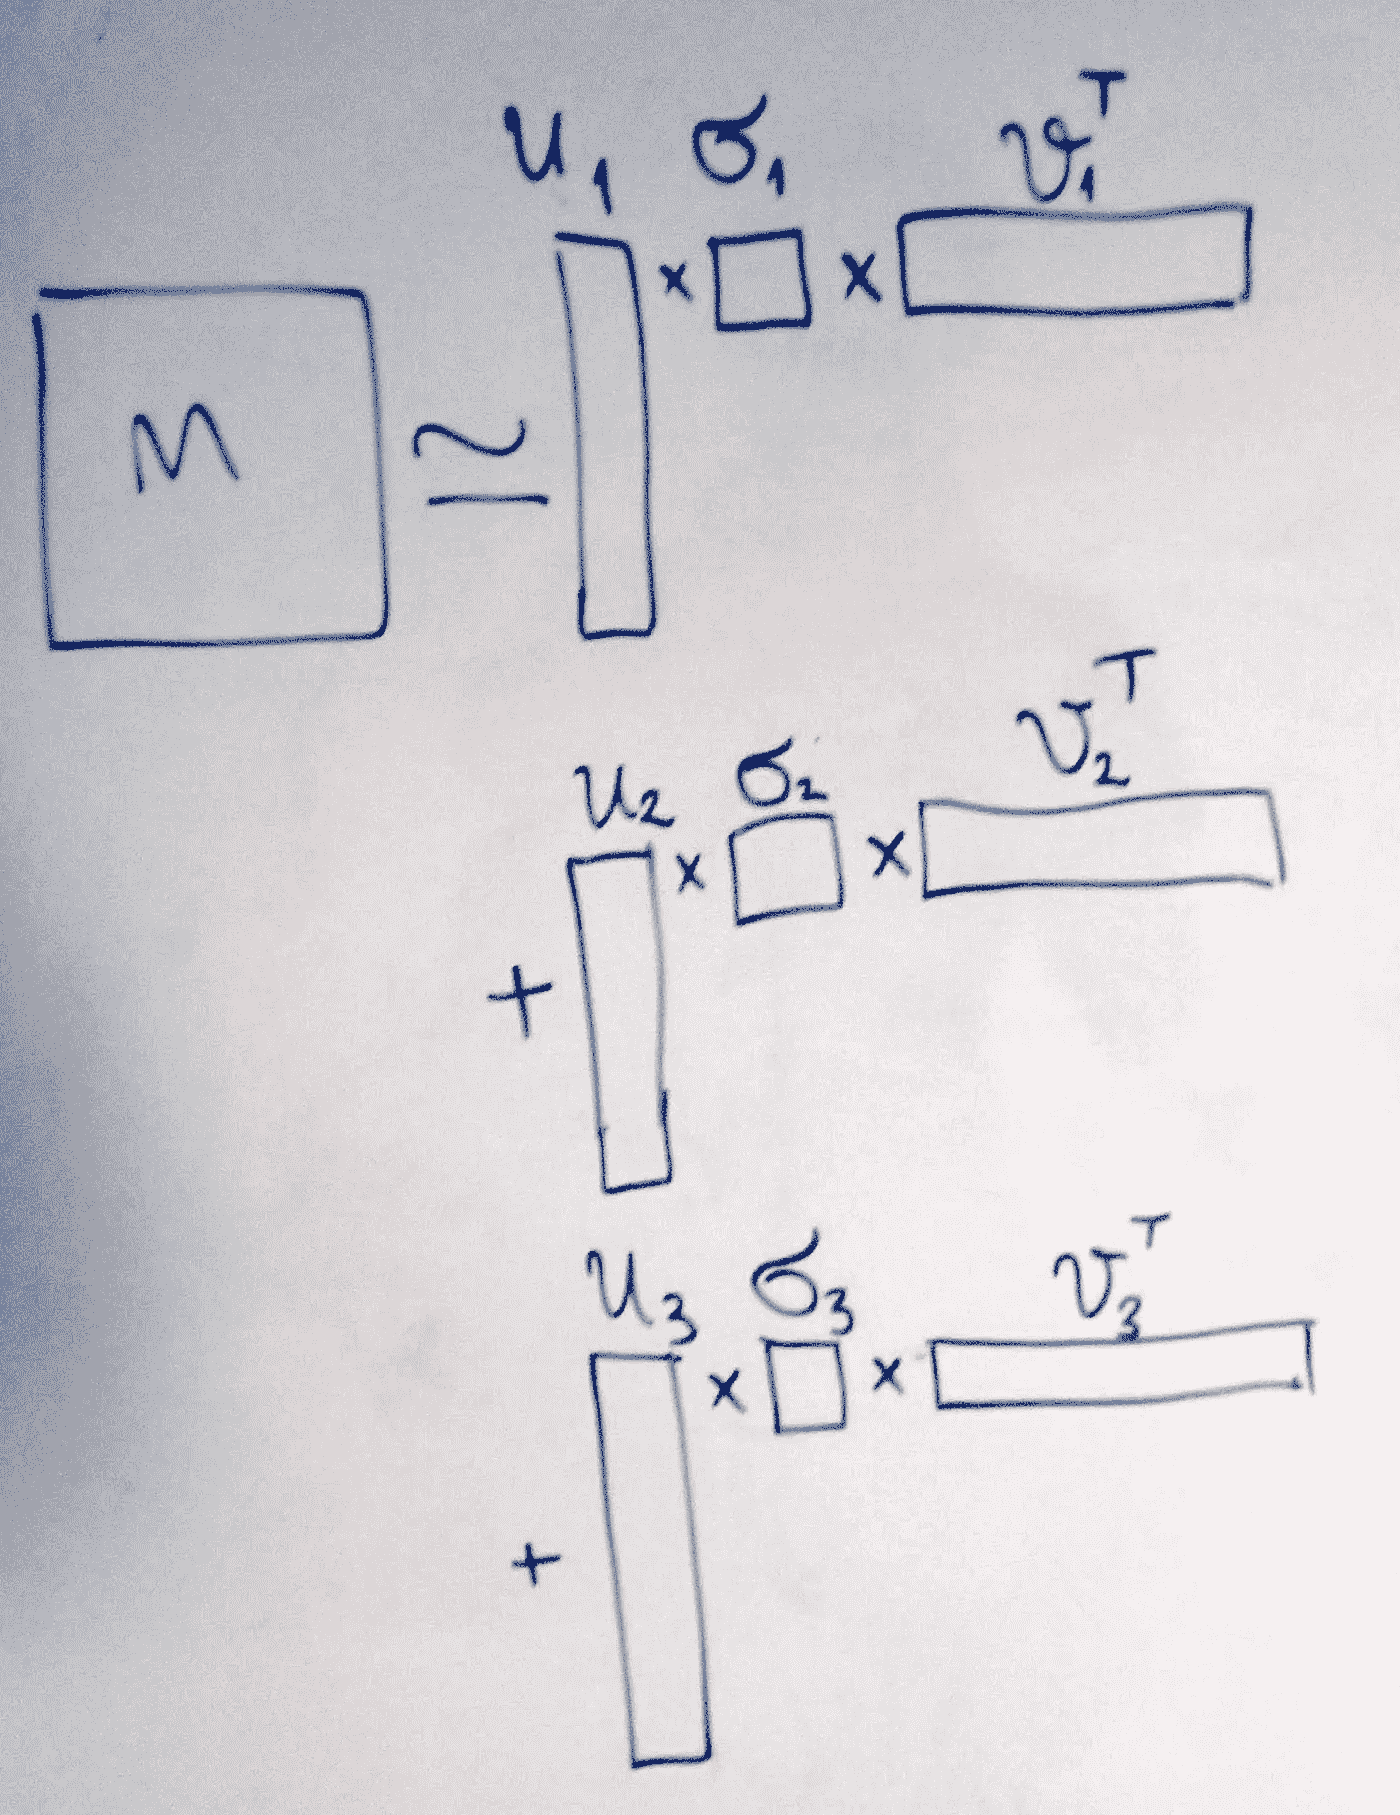 u₁ σ₁ v₁ᵀ
M ≃ × ×
u₂ σ₂ v₂ᵀ
+ × ×
u₃ σ₃ v₃ᵀ
+ × ×